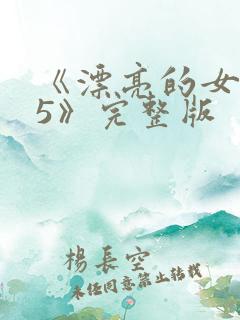 《漂亮的女
5》完整版
楊長空
未经同意禁止转载